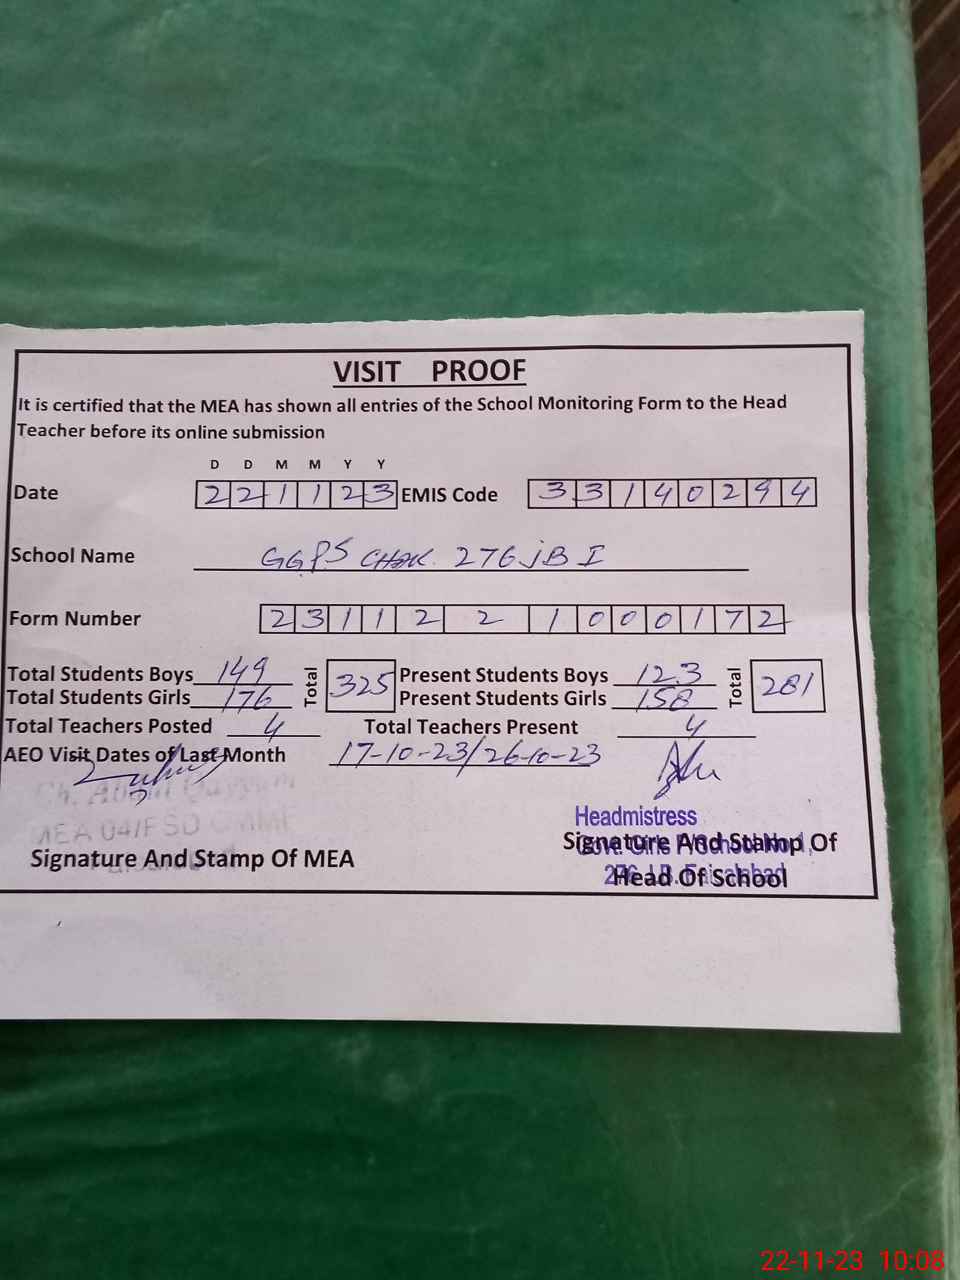 VISIT PROOF
It is certified that the MEA has shown all entries of the School Monitoring Form to the Head
Teacher before its online submission
D D M M Y Y
Date 2 2 1 1 2 3 EMIS Code 3 3 1 4 0 2 9 4
School Name GGPS CHAK. 276 JB I
Form Number 2 3 1 1 2 2 1 0 0 0 1 7 2
Total Students Boys 149 Total 325 Present Students Boys 123 Total 281
Total Students Girls 176 Present Students Girls 158
Total Teachers Posted 4 Total Teachers Present 4
AEO Visit Dates of Last Month 17-10-23/26-10-23
Ch. Abdul Qayyum
MEA 04/FSD
Headmistress
Signature And Stamp Of
Govt. Girls P/School No 1,
Signature And Stamp Of MEA
276 J.B. Faisalabad
Head Of School
22-11-23 10:08